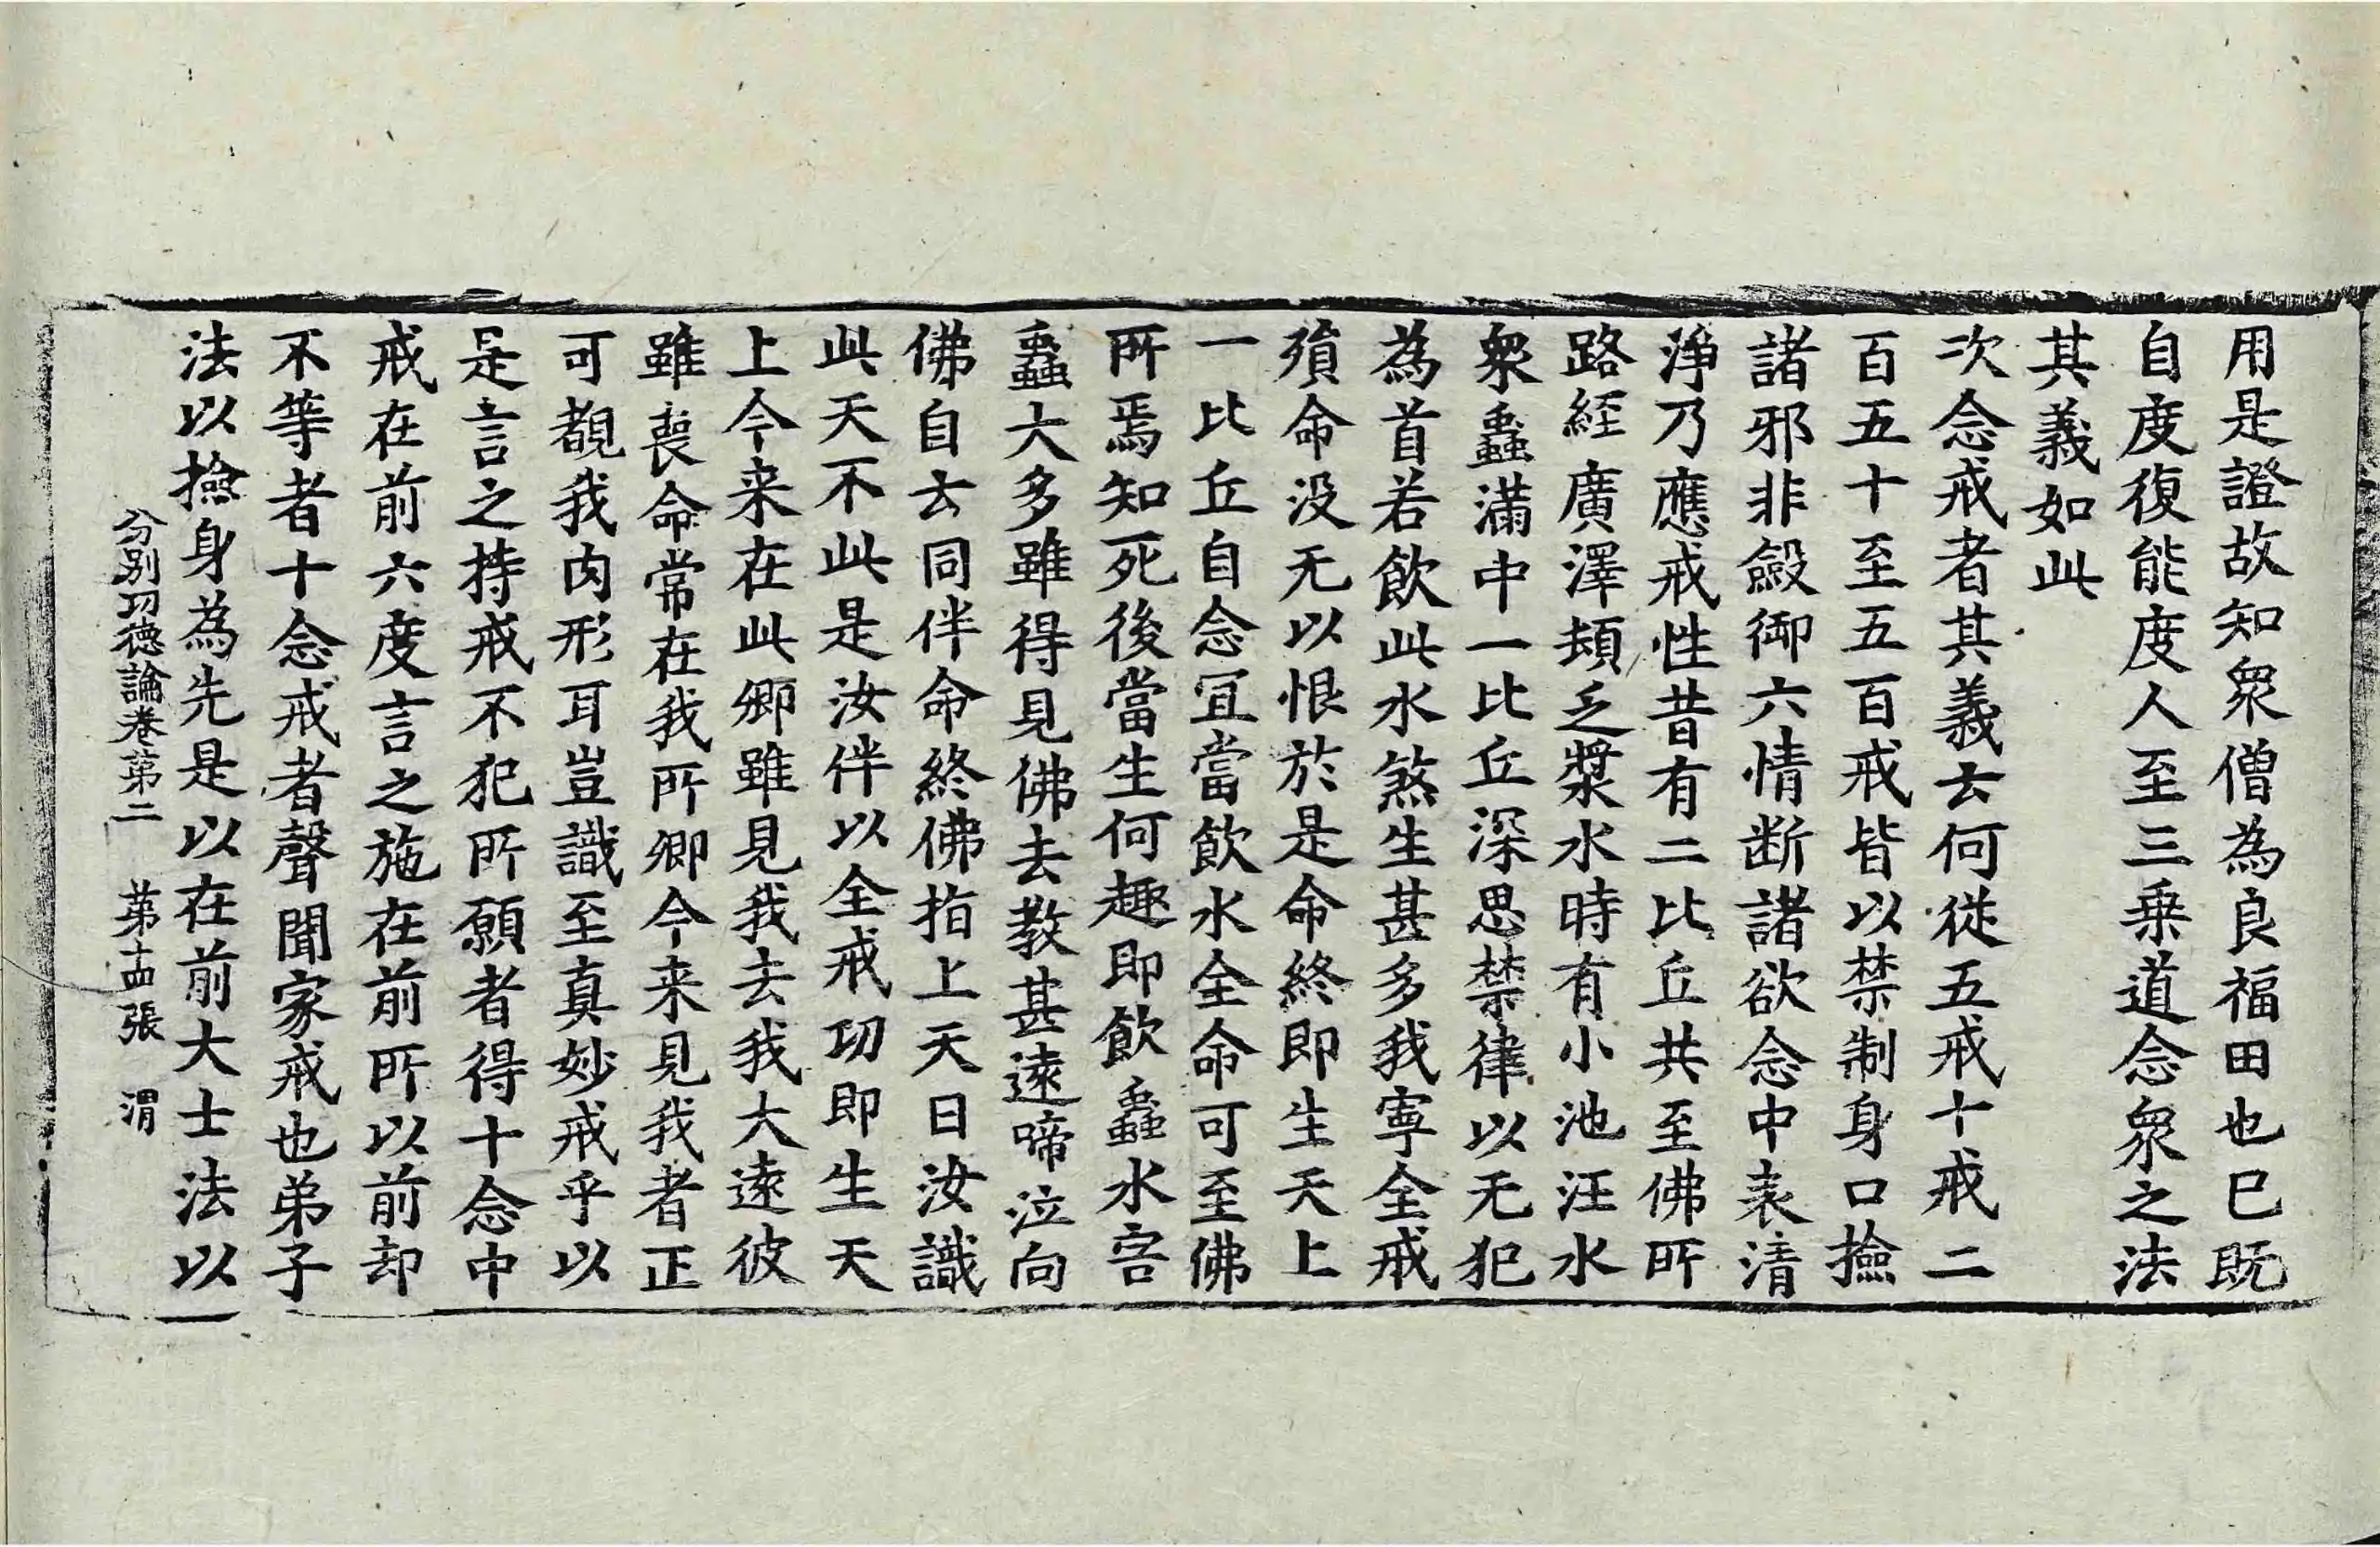 用是證故知衆僧為良福田也已既
自度復能度人至三乗道念衆之法
其義如此
次念戒者其義云何從五戒十戒二
百五十至五百戒皆以禁制身口撿
諸邪非斂御六情断諸欲念中表清
淨乃應戒性昔有二比丘共至佛所
路經廣澤頓乏漿水時有小池汪水
衆蟲滿中一比丘深思禁律以无犯
為首若飲此水煞生甚多我寧全戒
殞命没无以恨於是命終即生天上
一比丘自念冝當飲水全命可至佛
所焉知死後當生何趣即飲蟲水害
蟲大多雖得見佛去教甚遠啼泣向
佛自云同伴命終佛指上天曰汝識
此天不此是汝伴以全戒功即生天
上今来在此卿雖見我去我大遠彼
雖喪命常在我所卿今来見我者正
可覩我肉形耳豈識至真妙戒乎以
是言之持戒不犯所願者得十念中
戒在前六度言之施在前所以前却
不等者十念戒者聲聞家戒也弟子
法以撿身為先是以在前大士法以
分別功德論卷第二　第十四張　渭